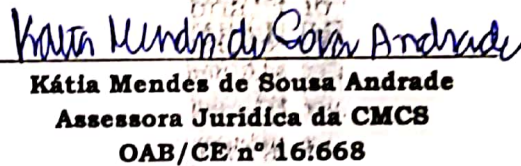 Kátia Mendes de Sousa Andrade
Kátia Mendes de Sousa Andrade
Assessora Jurídica da CMCS
OAB/CE nº 16.668